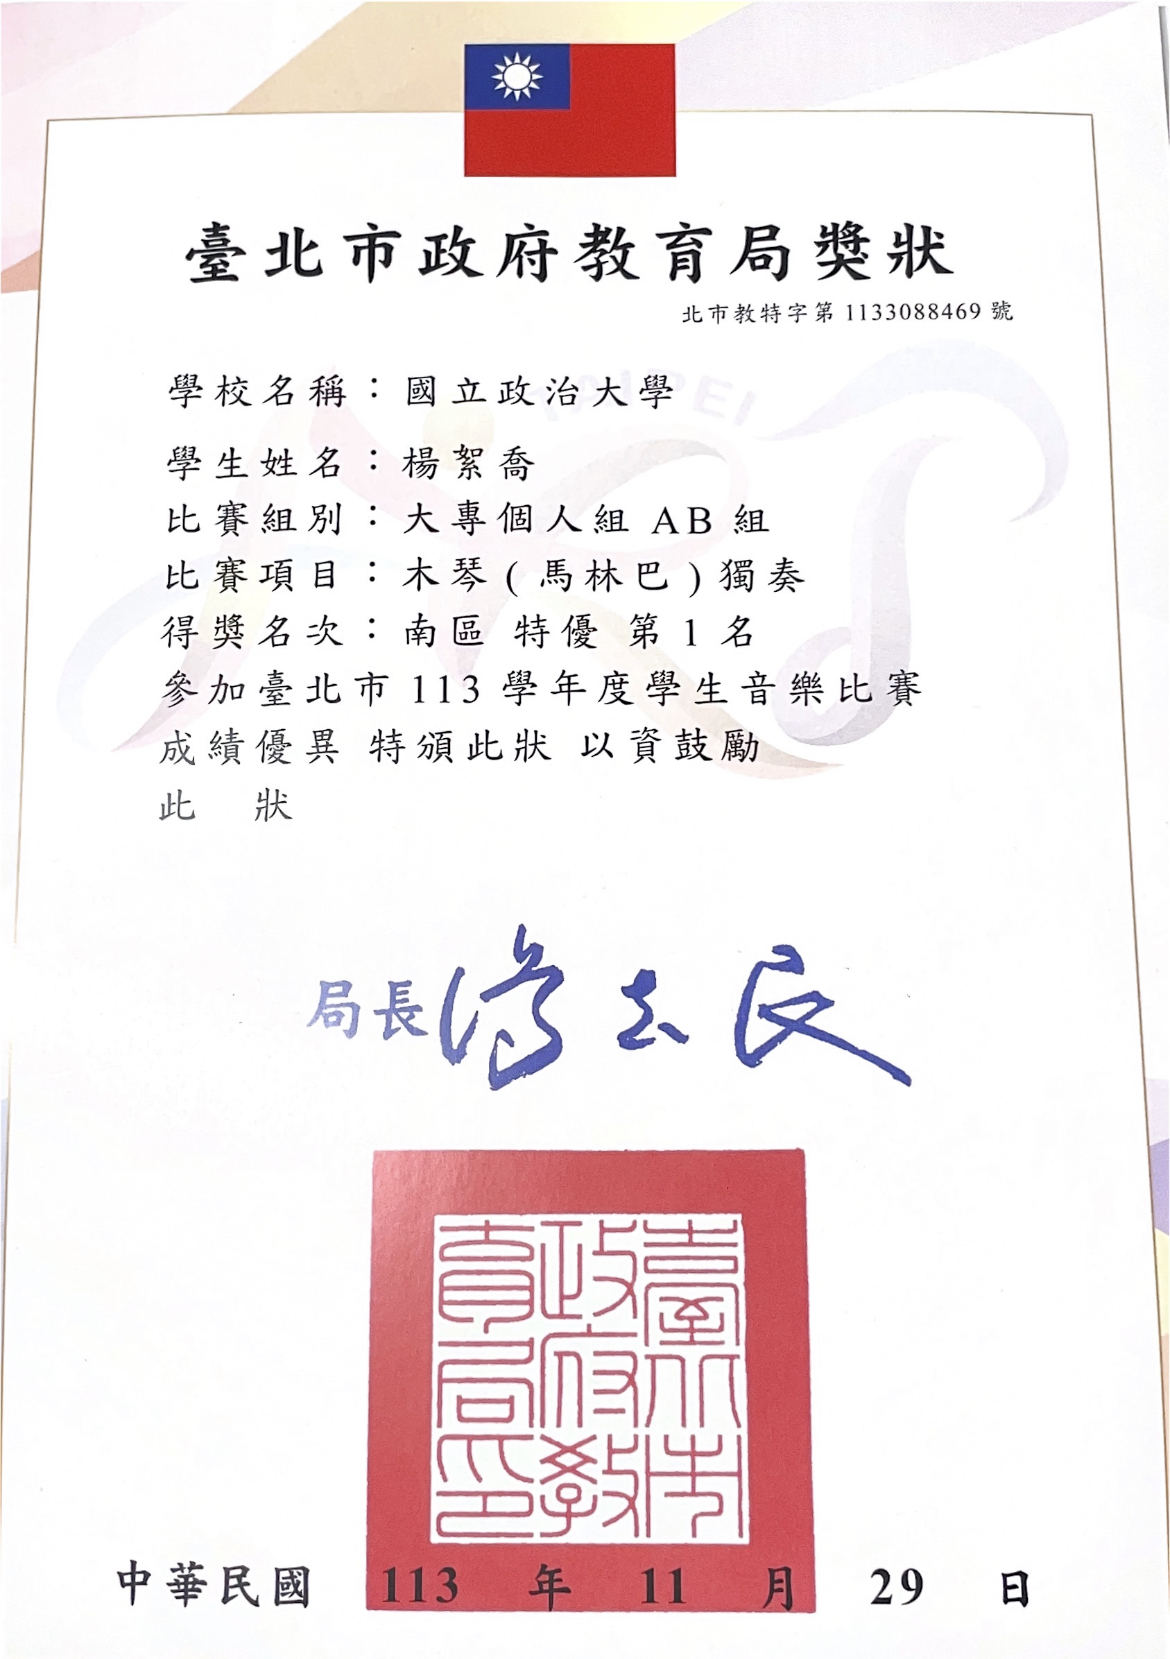 臺北市政府教育局獎狀
北市教特字第1133088469號
TAIPEI
學校名稱：國立政治大學
學生姓名：楊絮喬
比賽組別：大專個人組AB組
比賽項目：木琴(馬林巴)獨奏
得獎名次：南區 特優 第1名
參加臺北市113學年度學生音樂比賽
成績優異 特頒此狀 以資鼓勵
此 狀
局長湯志民
臺北市政府教育局印
中華民國 113 年 11 月 29 日